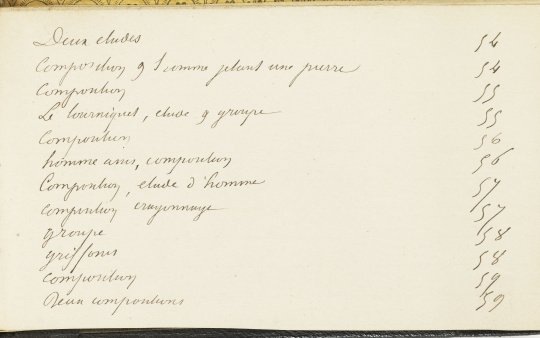 Deux etudes 54
Composition & homme jetant une pierre 54
Composition 55
Le tourniquet, etude & groupe 55
Composition 56
homme assis, composition 56
Composition, etude d'homme 57
composition crayonnage 57
groupe 58
griffonis 58
composition 59
Deux compositions 59